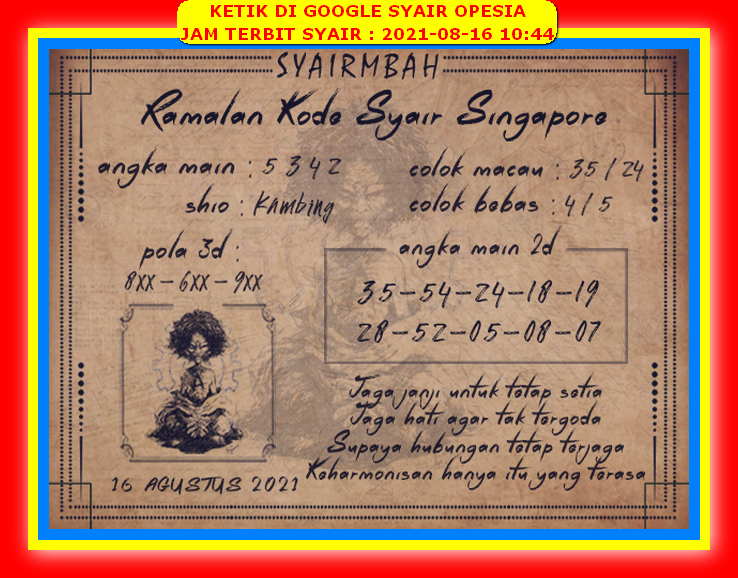 KETIK DI GOOGLE SYAIR OPESIA
JAM TERBIT SYAIR : 2021-08-16 10:44
SYAIRMBAH
Ramalan Kode Syair Singapore
angka main : 5 3 4 2
colok macau : 35 / 24
shio : Kambing
colok bebas : 4 / 5
pola 3d :
8XX - 6XX - 9XX
angka main 2d
35-54-24-18-19
28-52-05-08-07
Jaga janji untuk tetap setia
Jaga hati agar tak tergoda
Supaya hubungan tetap terjaga
Keharmonisan hanya itu yang terasa
16 AGUSTUS 2021